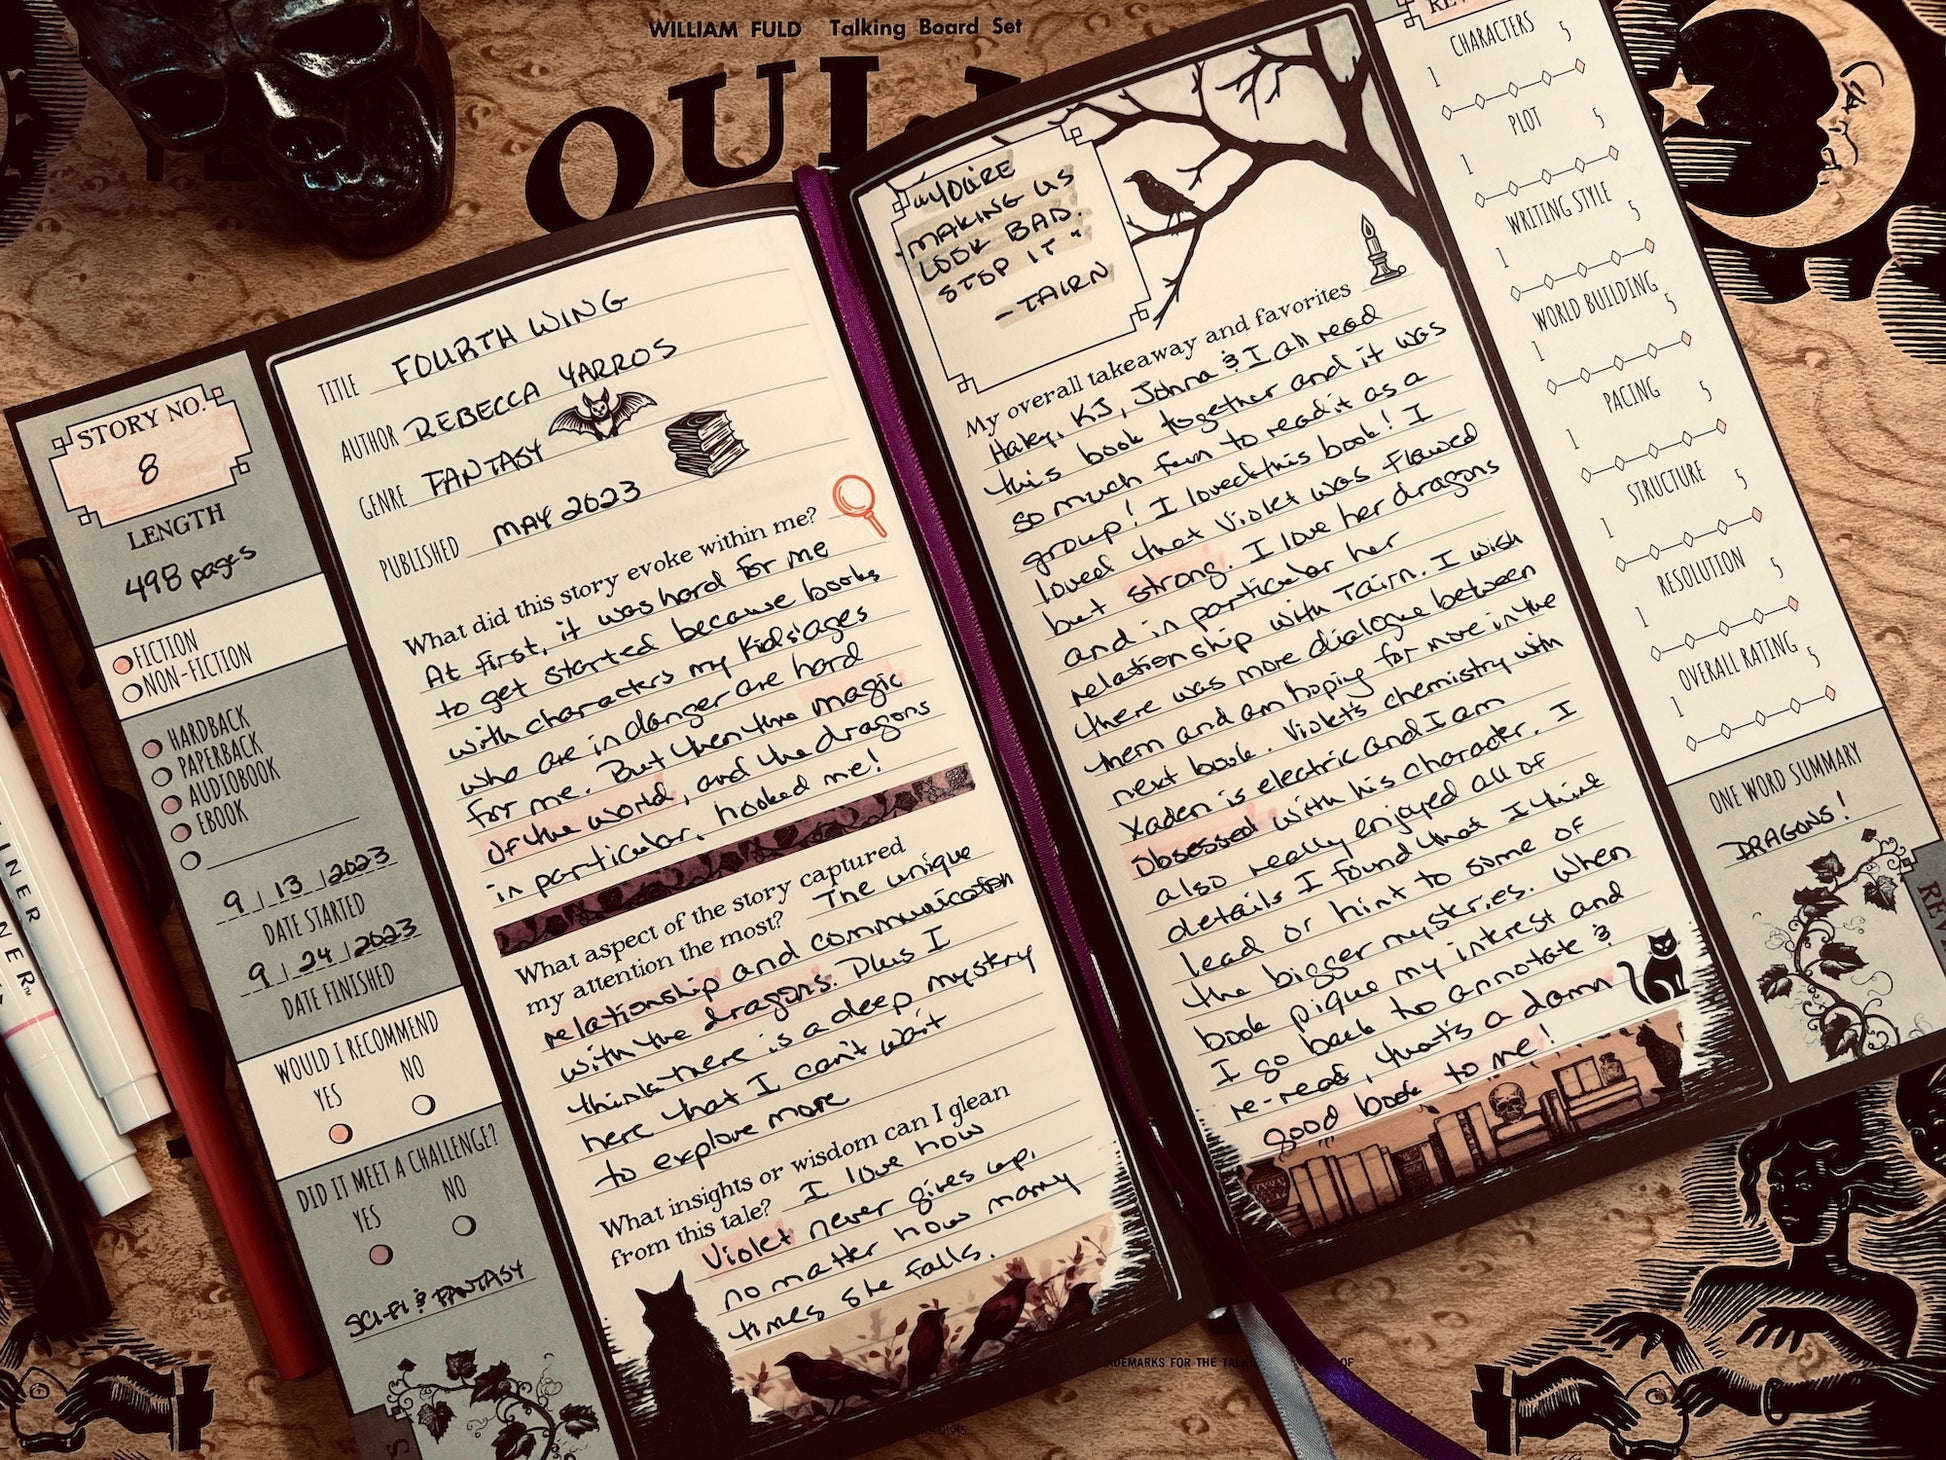 WILLIAM FULD Talking Board Set
STORY NO.
8
LENGTH
498 pages
FICTION
NON-FICTION
HARDBACK
PAPERBACK
AUDIOBOOK
EBOOK
9 | 13 | 2023
DATE STARTED
9 | 24 | 2023
DATE FINISHED
WOULD I RECOMMEND
YES NO
DID IT MEET A CHALLENGE?
YES NO
SCI-FI & FANTASY
TITLE FOURTH WING
AUTHOR REBECCA YARROS
GENRE FANTASY
PUBLISHED MAY 2023
What did this story evoke within me?
At first, it was hard for me
to get started because books
with characters my kids' ages
who are in danger are hard
for me. But then the magic
of the world, and the dragons
in particular, hooked me!
What aspect of the story captured
my attention the most? The unique
relationship and communication
with the dragons. Plus I
think there is a deep mystery
here that I can't wait
to explore more
What insights or wisdom can I glean
from this tale? I love how
Violet never gives up,
no matter how many
times she falls.
"YOU'RE
MAKING US
LOOK BAD.
STOP IT"
-TAIRN
My overall takeaway and favorites
Haley, KJ, Johna & I all read
this book together and it was
so much fun to read it as a
group! I loved this book! I
loved that Violet was flawed
but strong. I love her dragons
and in particular her
relationship with Tairn. I wish
there was more dialogue between
them and am hoping for more in the
next book. Violet's chemistry with
Xaden is electric and I am
obsessed with his character. I
also really enjoyed all of
details I found that I think
lead or hint to some of
the bigger mysteries. When
book pique my interest and
I go back to annotate &
re-read, that's a damn
good book to me!
CHARACTERS
1 5
PLOT
1 5
WRITING STYLE
1 5
WORLD BUILDING
1 5
PACING
1 5
STRUCTURE
1 5
RESOLUTION
1 5
OVERALL RATING
1 5
ONE WORD SUMMARY
DRAGONS!